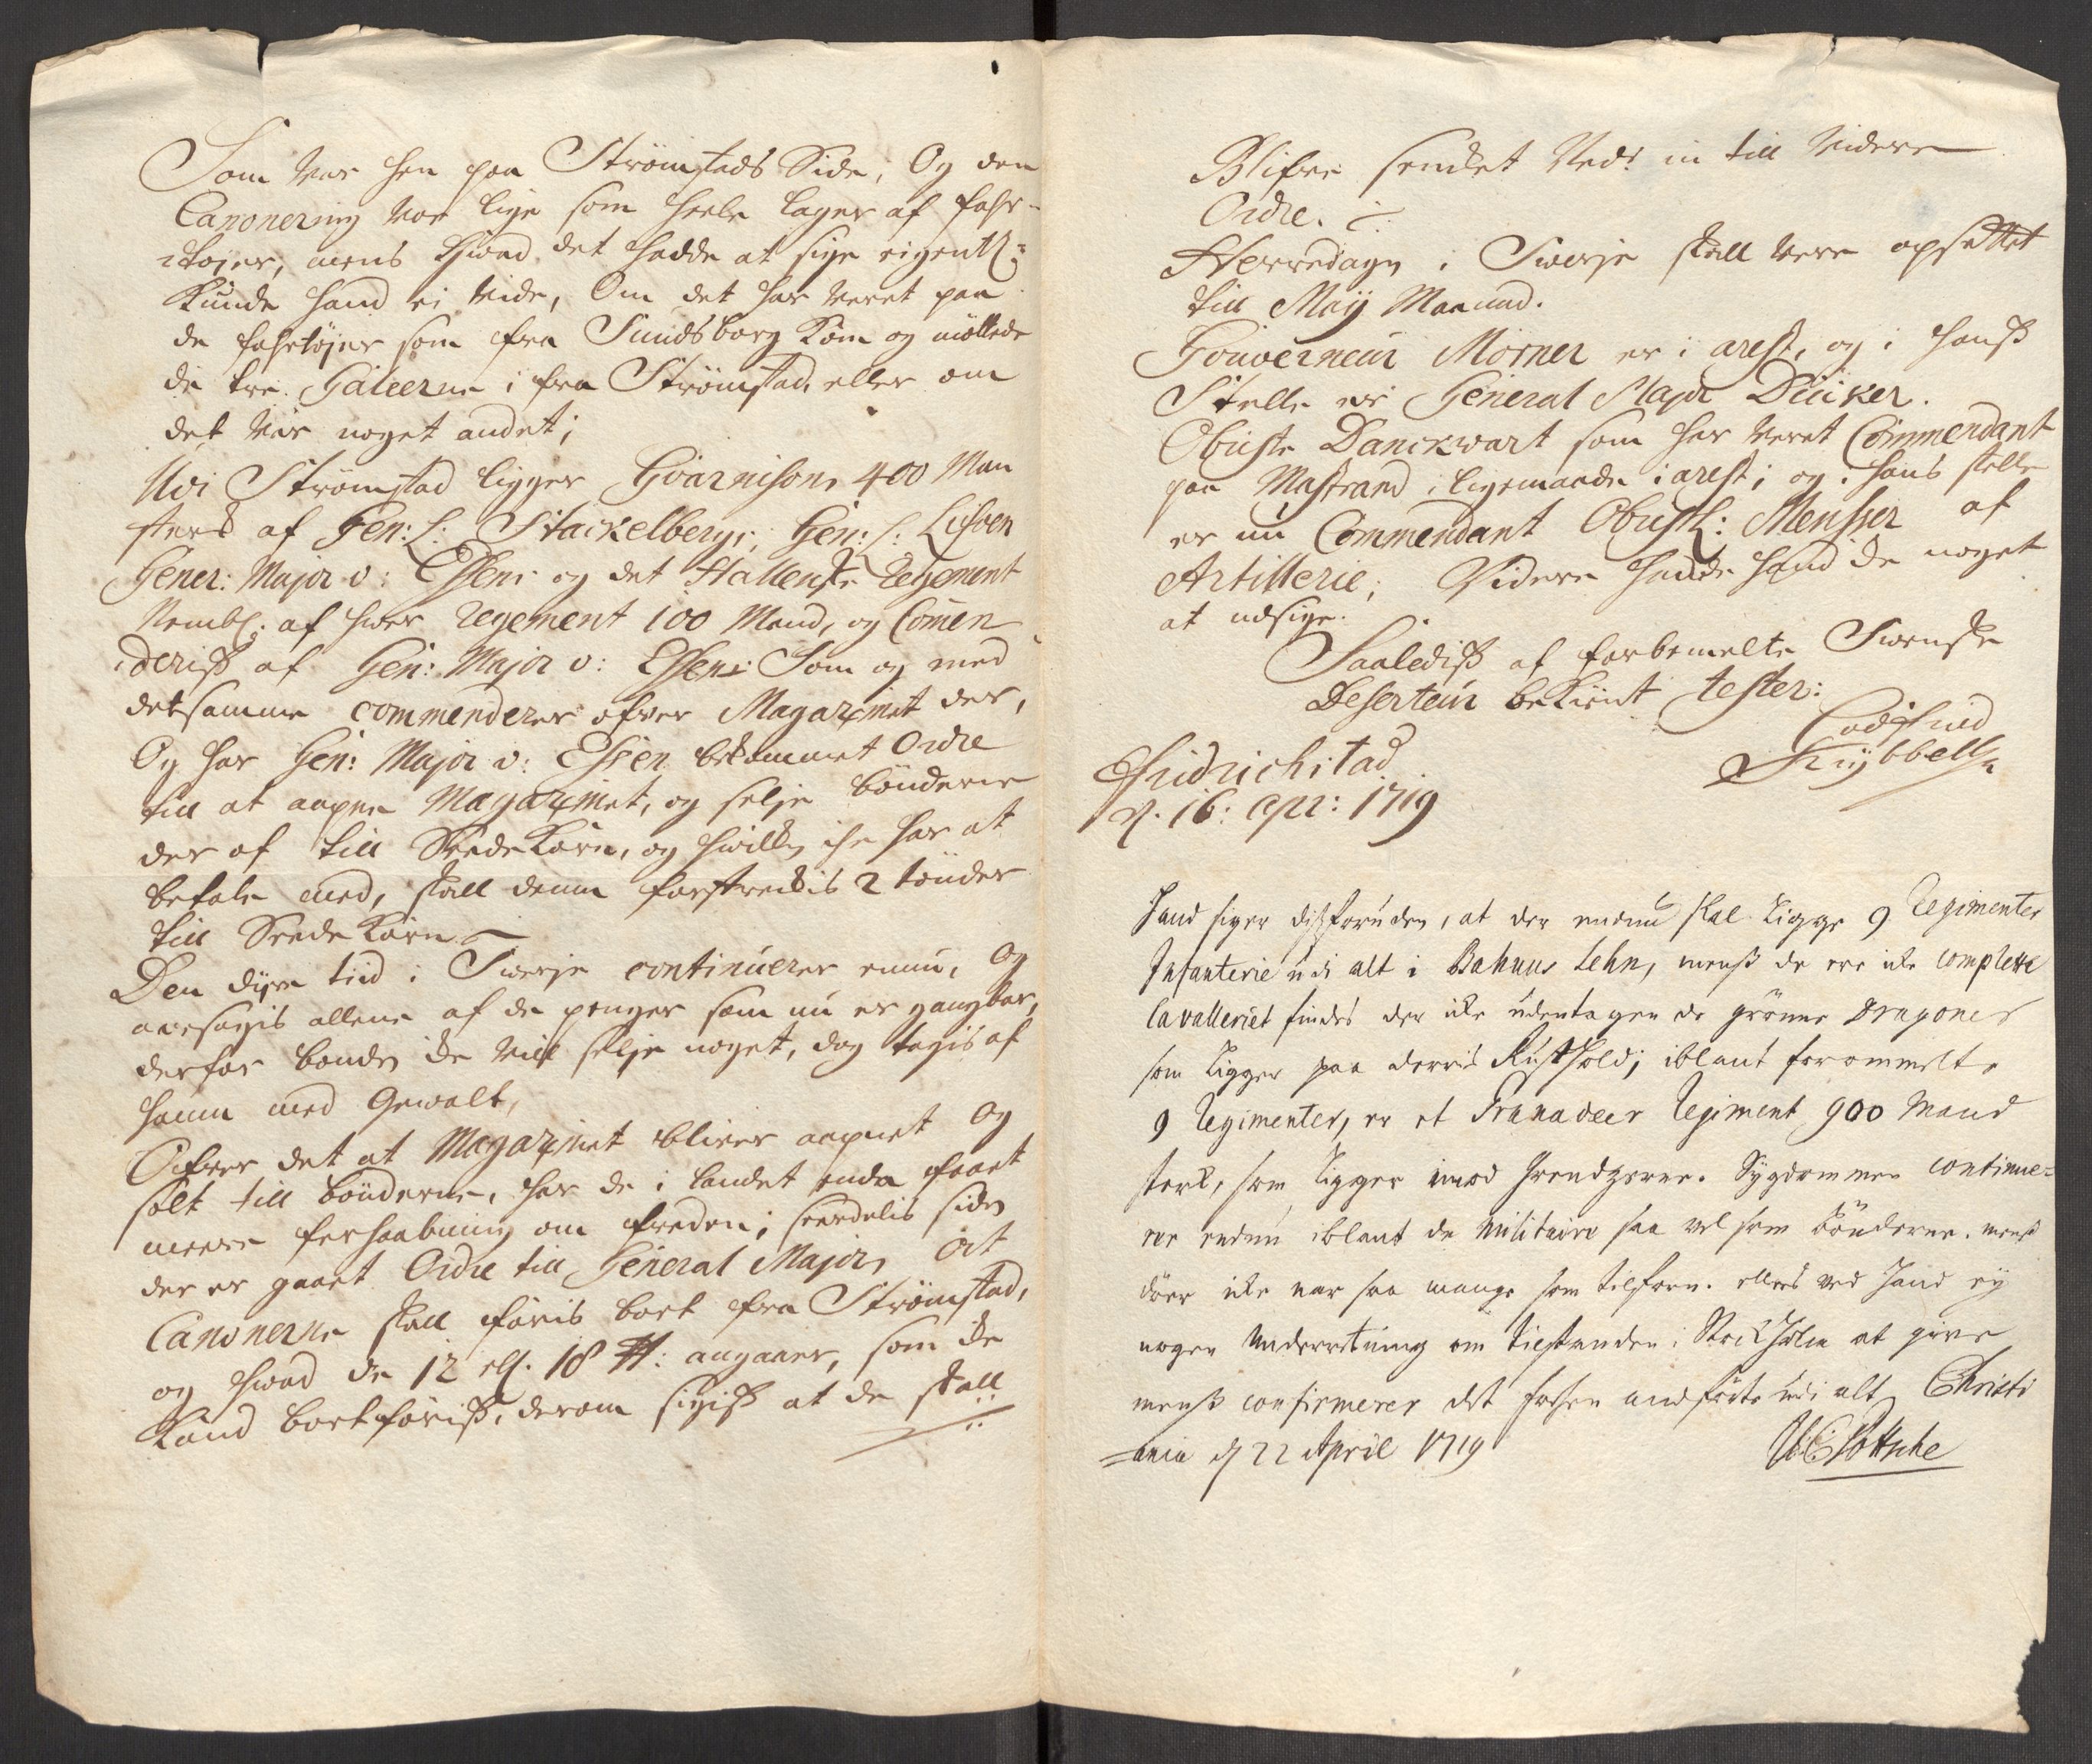 Som var hen paa Strömstads Side, Og den
Canonering var lige som heele lager af fahr-
tøyer, mens hwad det hadde at sige eigentl:
Kunde hand ei vide, Om det har veret paa
de fahrtøyer som fra Sundsborg Kom og møttede
die tre Galleerne i fra Strömstad, eller om
det var noget andet;
Udi Strömstad ligger Guarnison 400 Man
sterk af Gen: L: Stackelbergs, Gen: L: Liswen
Gener: Major v: Essens og det Hallenske Regement
Nembl: af hwer Regement 100 Mand, og Commen
deriss af Gen: Major v: Essens Som og med
detsamme commenderer ofwer Magazinet der,
Og har Gen: Major v: Essen bekommet Ordre
till at aapne Magazinet, og selje bönderne
der af till SeedeKorn, og hwilken ike har at
betale med, skall denne forstreckis 2 tönder
till SeedeKorn
Den dyre tiid i Swerje continuerer ennu, Og
aarsagis allene af de penger som nu er gangbar,
derfor bonden ike will selje noget, dog tagis af
hamm med Gewalt,
Ofwer det at Magazinet bliver aapnet Og
solt till bönderne, har de i landet enda faaet
meere forhaabning om freden; serdelis siden
der er gaaet Ordre till General Major, At
Canonerne skall föris bort fra Strömstad,
og hwad de 12 ell. 18 ℔: angaaer, som ike
Kand bortföriss, derom sigiss at de skall
Blifwe sendet Ved: in till videre
Ordre.
Herredagen i Swerje skall vere opsattet
till Maij Maanned.
Gouverneur Mörner er i arest, og i hanss
Stelle er General Major Dücker.
Obriste Danckwart som har veret Commendant
paa Mastrand, ligemaade i arest; og i hans stelle
er nu Commendant Obristl: Mensser af
Artillerie; Videre hadde hand ike noget
at udsige.
Saalediss af forbemelte Swenske
Deserteur beKient tester:
Fridrichstad
d. 16: apr: 1719
Hand siger dissforuden, at der endnu skal ligge 9 Regimenter
Infanterie udi alt i Bahuus Lehn, menss de ere ike complette
Cavalleriet findes der ike udentagen de grönne Dragoner
som ligger paa derris Rusthold; iblant forommelte
9 Regimenter, er et Granadeer Regiment 900 Mand
sterk, som ligger imod Grendzerne. Sygdommen continue-
rer endnu iblant de Militaire saa vel som bönderne. menss
döer ike nær saa mange som tilforn. ellers ved Hand ey
nogen Underretning om tilstanden i StockHolm at give
menss confirmerer det forhen anförte udi alt, Christi
=ania d 22 April 1719